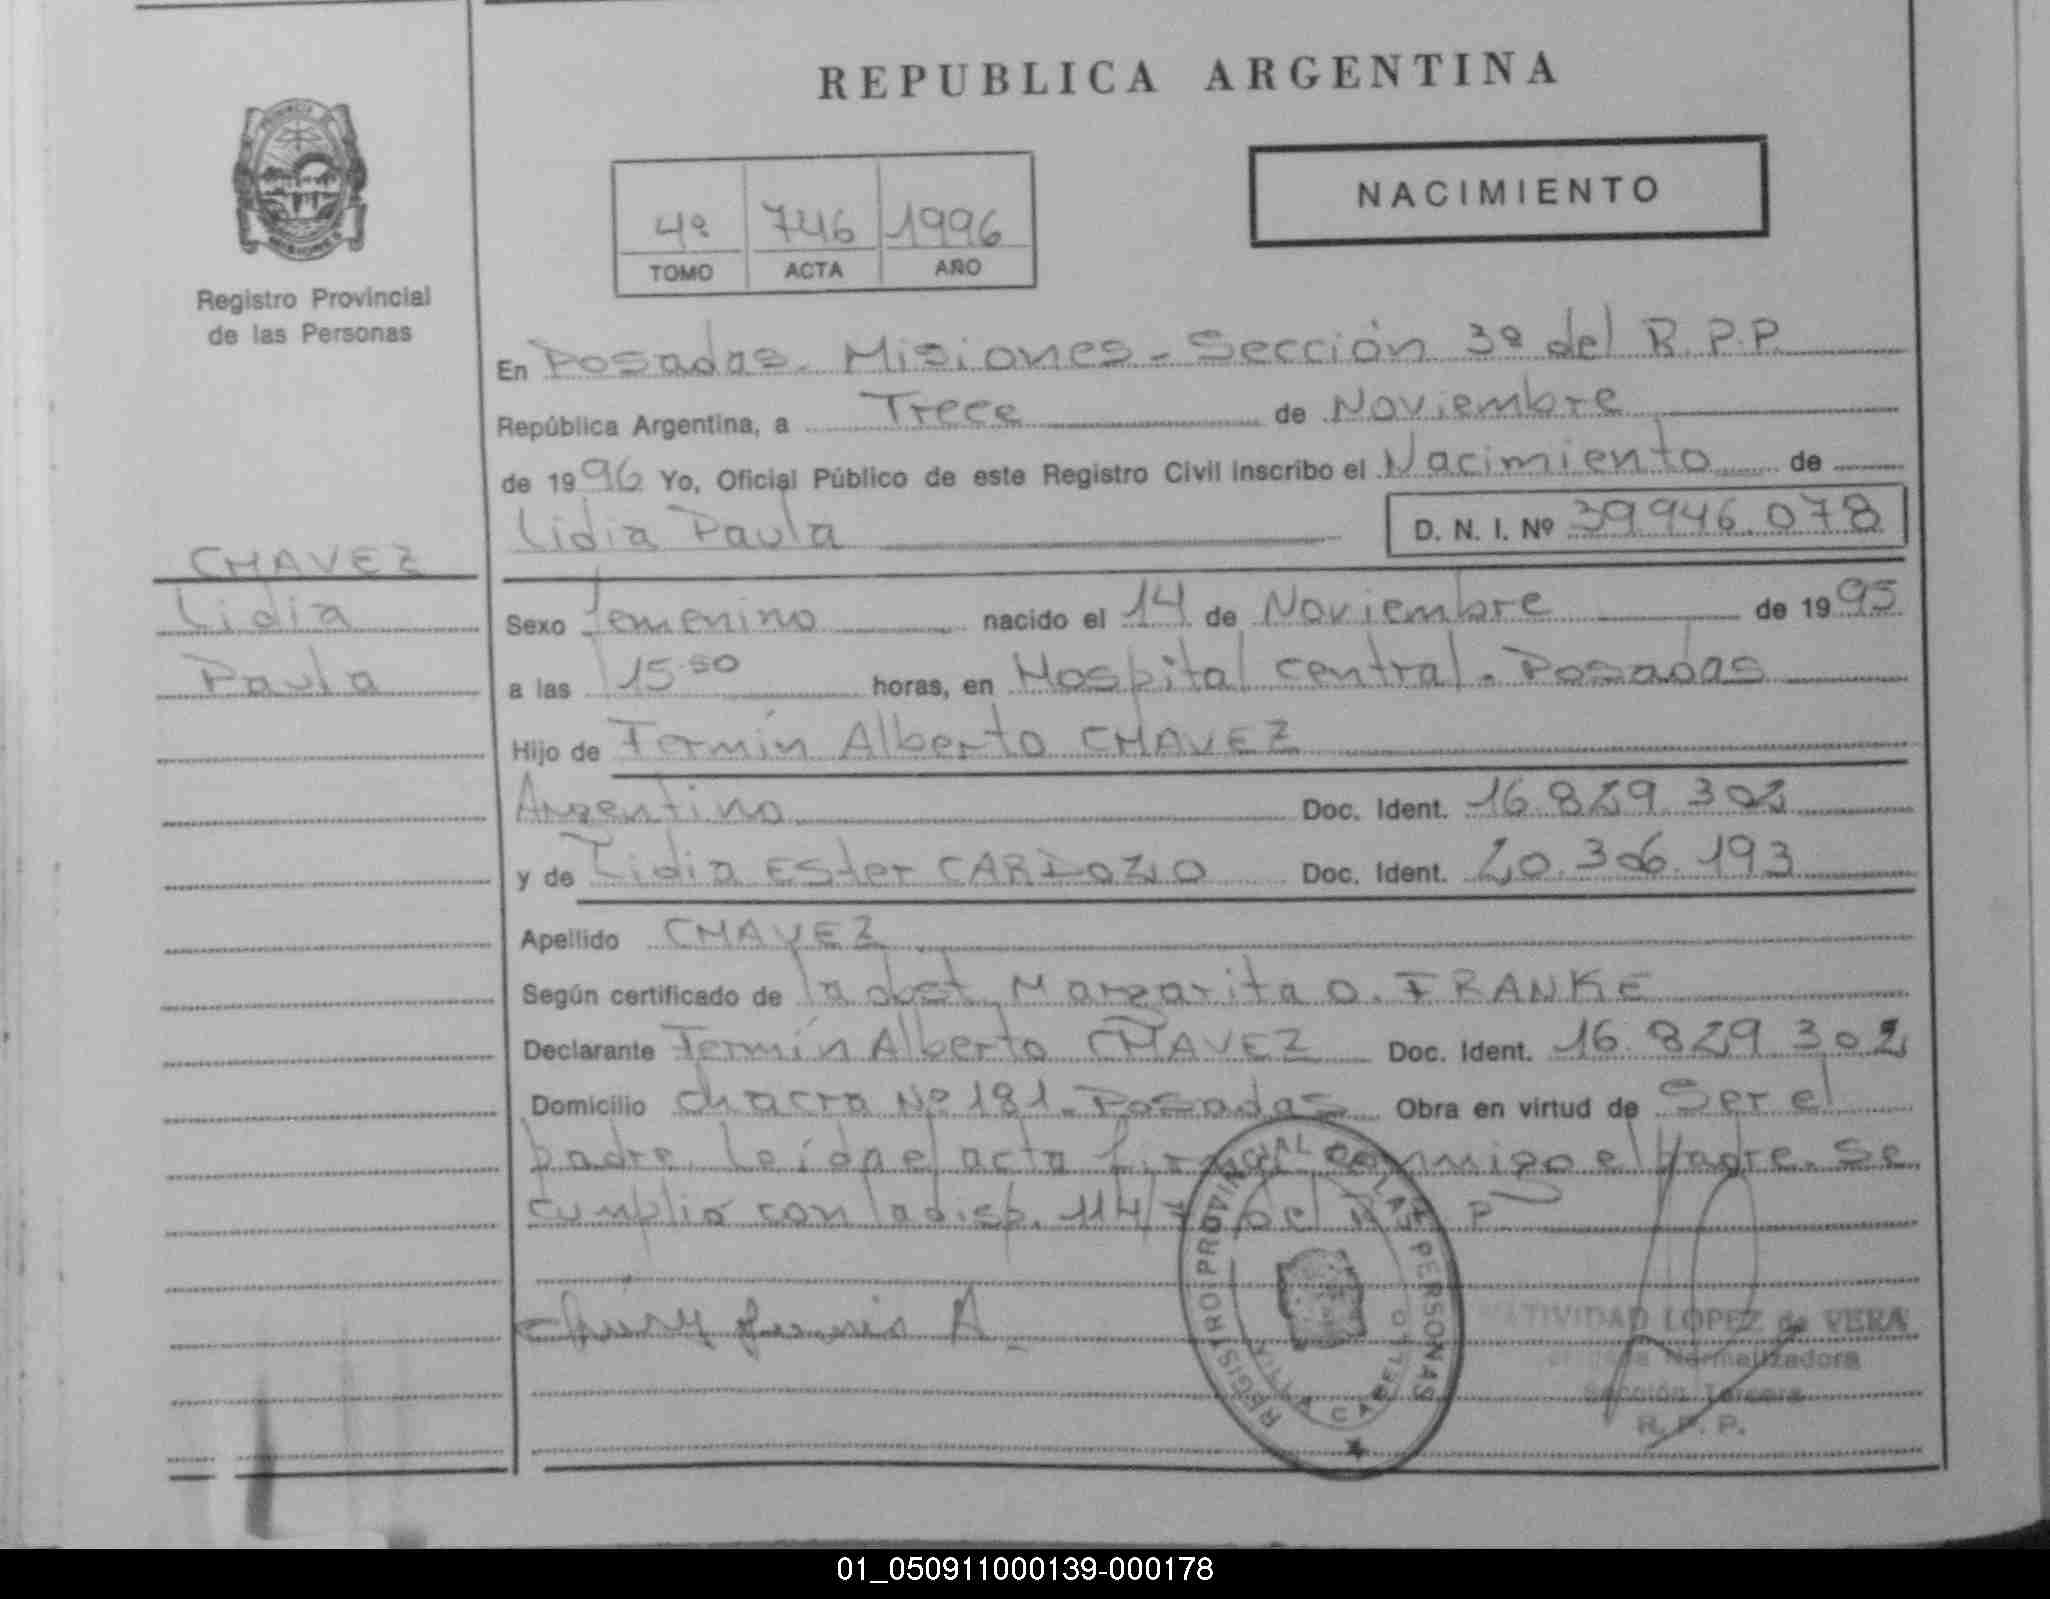 REPUBLICA ARGENTINA
NACIMIENTO
4º 746 1996
TOMO ACTA AÑO
Registro Provincial
de las Personas
En Posadas. Misiones - Sección 3º del R.P.P.
República Argentina, a Trece de Noviembre
de 1996 Yo, Oficial Público de este Registro Civil inscribo el Nacimiento de
Lidia Paula D. N. I. Nº 39.946.078
CHAVEZ
Lidia
Paula
Sexo femenino nacido el 14 de Noviembre de 1995
a las 15 50 horas, en Hospital central. Posadas
Hijo de Fermín Alberto CHAVEZ
Argentino Doc. Ident. 16.829.302
y de Lidia Ester CARDOZO Doc. Ident. 20.306.193
Apellido CHAVEZ
Según certificado de la obst. Margarita O. FRANKE
Declarante Fermín Alberto CHAVEZ Doc. Ident. 16.829.302
Domicilio chacra Nº 181 - Posadas Obra en virtud de Ser el
padre. Leída el acta firma conmigo el padre. Se
cumplió con la disp. 114/ del R.P.P
REGISTRO PROVINCIAL DE LAS PERSONAS
NATIVIDAD LOPEZ de VERA
Normalizadora
Sección Tercera
R. P. P.
01_050911000139-000178